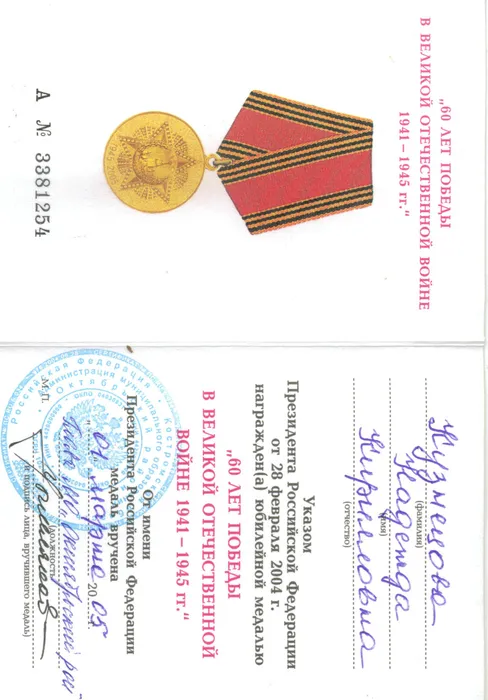 „60 ЛЕТ ПОБЕДЫ
В ВЕЛИКОЙ ОТЕЧЕСТВЕННОЙ ВОЙНЕ
1941 – 1945 гг.“
А № 3381254
Кузнецова
(фамилия)
Надежда
(имя)
Кирилловна
(отчество)
Указом
Президента Российской Федерации
от 28 февраля 2004 г.
награжден(а) юбилейной медалью
„60 ЛЕТ ПОБЕДЫ
В ВЕЛИКОЙ ОТЕЧЕСТВЕННОЙ
ВОЙНЕ 1941 – 1945 гг.“
От имени
Президента Российской Федерации
медаль вручена
„01“ марта 2005
Октябрьский
(должность
М.П.
и подпись лица, вручившего медаль)
Российская Федерация
Костромская
Администрация муниципального